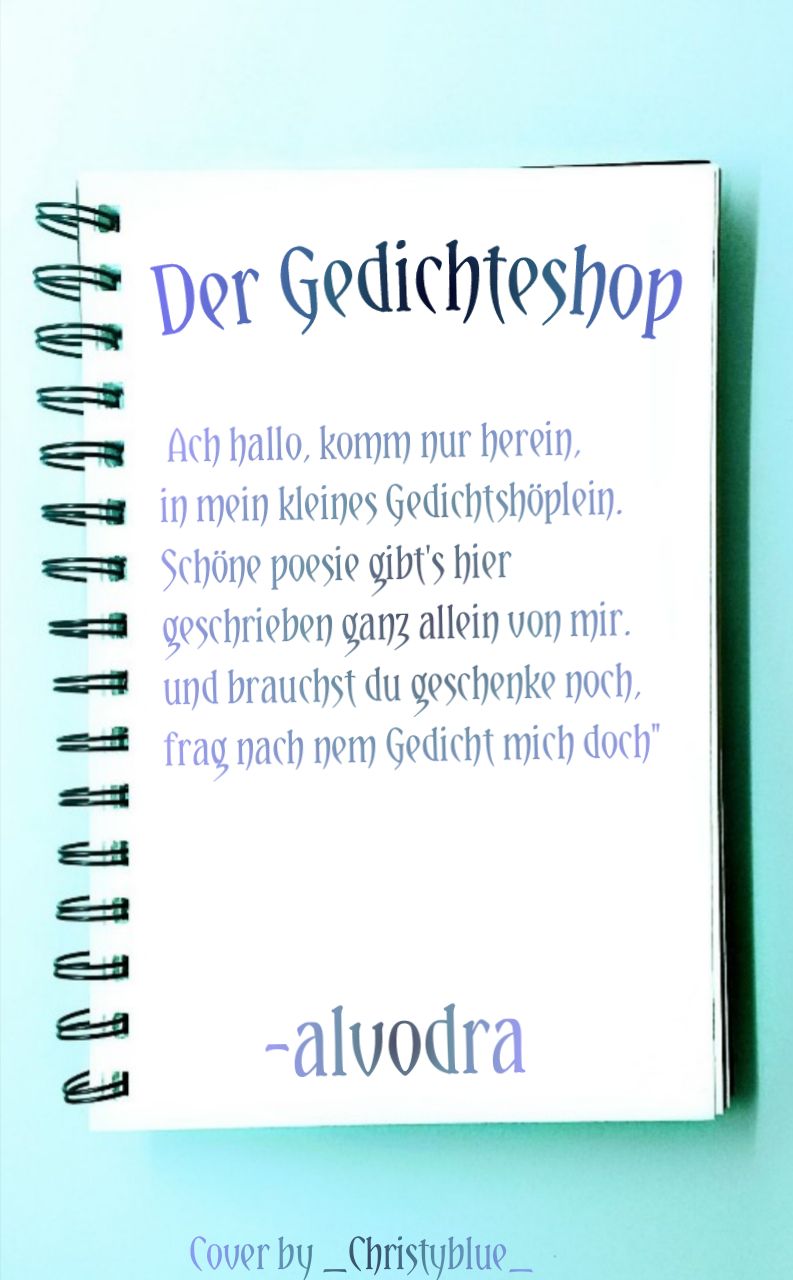 Der Gedichteshop
Ach hallo, komm nur herein,
in mein kleines Gedichtshöplein.
Schöne poesie gibt's hier
geschrieben ganz allein von mir.
und brauchst du geschenke noch,
frag nach nem Gedicht mich doch"
-alvodra
Cover by _Christyblue_